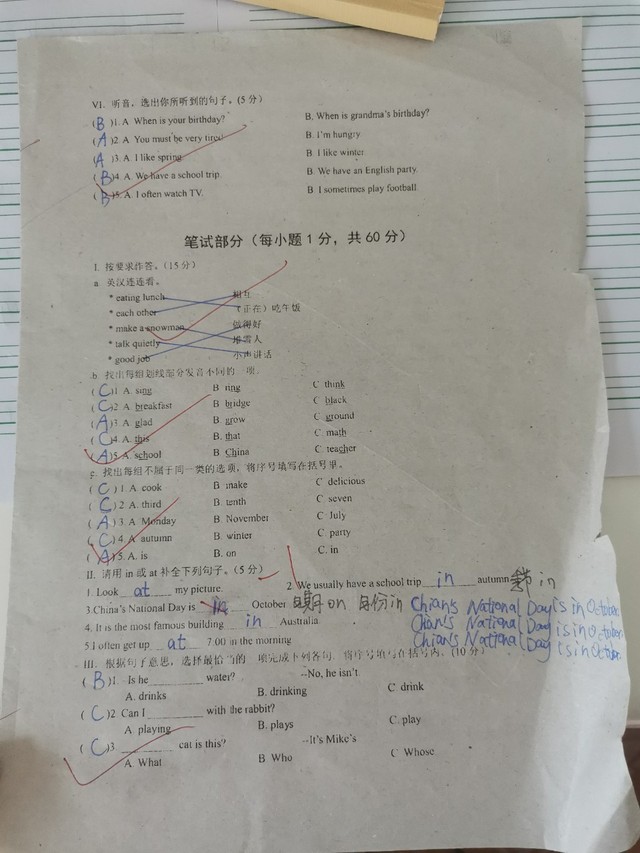 VI. 听音，选出你所听到的句子。(5 分)
( B )1. A When is your birthday? B. When is grandma's birthday?
( A )2 A You must be very tired B. i'm hungry
( A )3. A. I like spring B I like winter
( B )4. A. We have a school trip. B. We have an English party.
( B )5. A. I often watch TV. B I sometimes play football
笔试部分（每小题 1 分，共 60 分）
I. 按要求作答。（15 分）
a 英汉连连看。
* eating lunch 相互
* each other （正在）吃午饭
* make a snowman 做得好
* talk quietly 堆雪人
* good job 小声讲话
b 找出每组划线部分发音不同的一项.
( C )1 A. sing B ring C think
( C )2 A. breakfast B. bridge C. black
( A )3 A. glad B. grow C. ground
( C )4. A. this B. that C. math
( A )5 A school B. China C. teacher
c. 找出每组不属于同一类的选项，将序号填写在括号里。
( C ) 1 A. cook B. make C. delicious
( C ) 2 A. third B. tenth C. seven
( A ) 3 A Monday B. November C. July
( C ) 4 A autumn B. winter C. party
( A ) 5. A. is B. on C. in
II. 请用 in 或 at 补全下列句子。(5 分)
1. Look at my picture. 2. We usually have a school trip in autumn 季节 in
3.China's National Day is in October 日期 on 月份 in Chian's National Day is in October.
4. It is the most famous building in Australia. Chian's National Day is in October.
5.I often get up at 7:00 in the morning Chian's National Day is in October.
III. 根据句子意思，选择最恰当的一项完成下列各句，将序号填写在括号内。(10 分)
( B )1. Is he water? --No, he isn't.
A. drinks B. drinking C. drink
( C )2 Can I with the rabbit?
A. playing B. plays C. play
( C )3 cat is this? --It's Mike's
A. What B Who C Whose